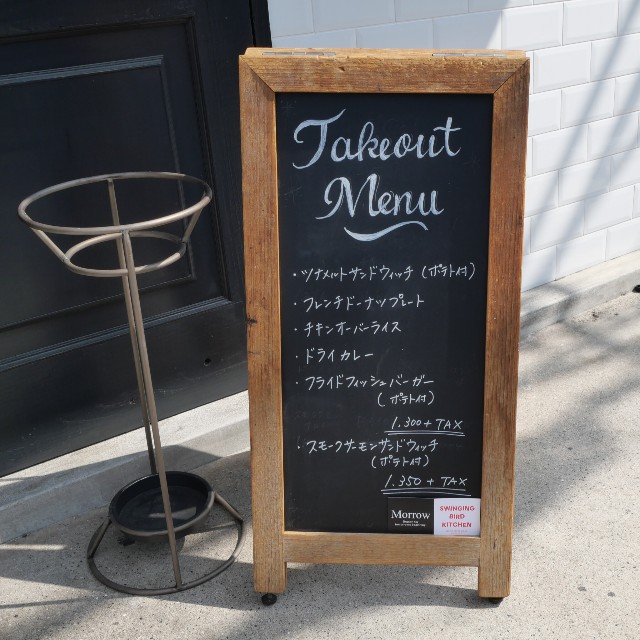 Takeout
Menu
・ツナメルトサンドウィッチ (ポテト付)
・フレンチドーナツプレート
・チキンオーバーライス
・ドライカレー
・フライドフィッシュバーガー
(ポテト付)
1.300 + TAX
・スモークサーモンサンドウィッチ
(ポテト付)
1.350 + TAX
Morrow
SWINGING
BIRD
KITCHEN